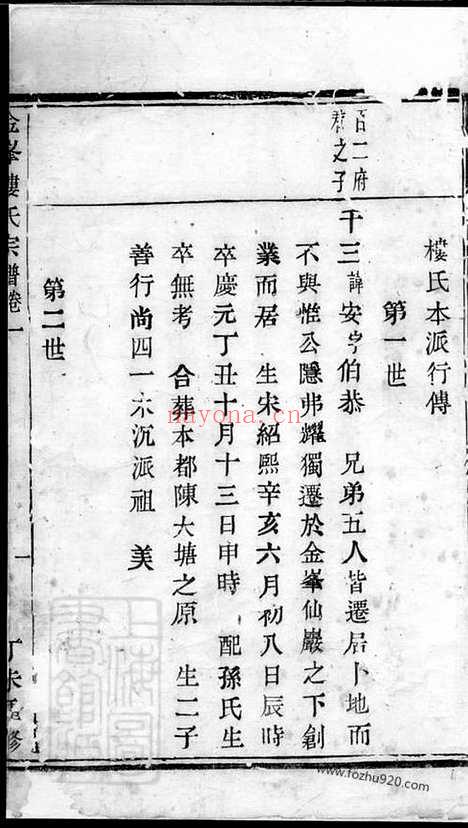 樓氏本派行傳
第一世
百二府
君之子
千三諱安字伯恭 兄弟五人皆遷居卜地而
不與惟公隱弗耀獨遷於金峯仙巖之下創
業而居 生宋紹熙辛亥六月初八日辰時
卒慶元丁丑十月十三日申時 配孫氏生
卒無考 合葬本都陳大塘之原 生二子
善行尚四一 沉派祖 美
第二世
金峯樓氏宗譜卷一
一
丁未重修
上海圖書館藏
nayona.cn
www.fozhu920.com